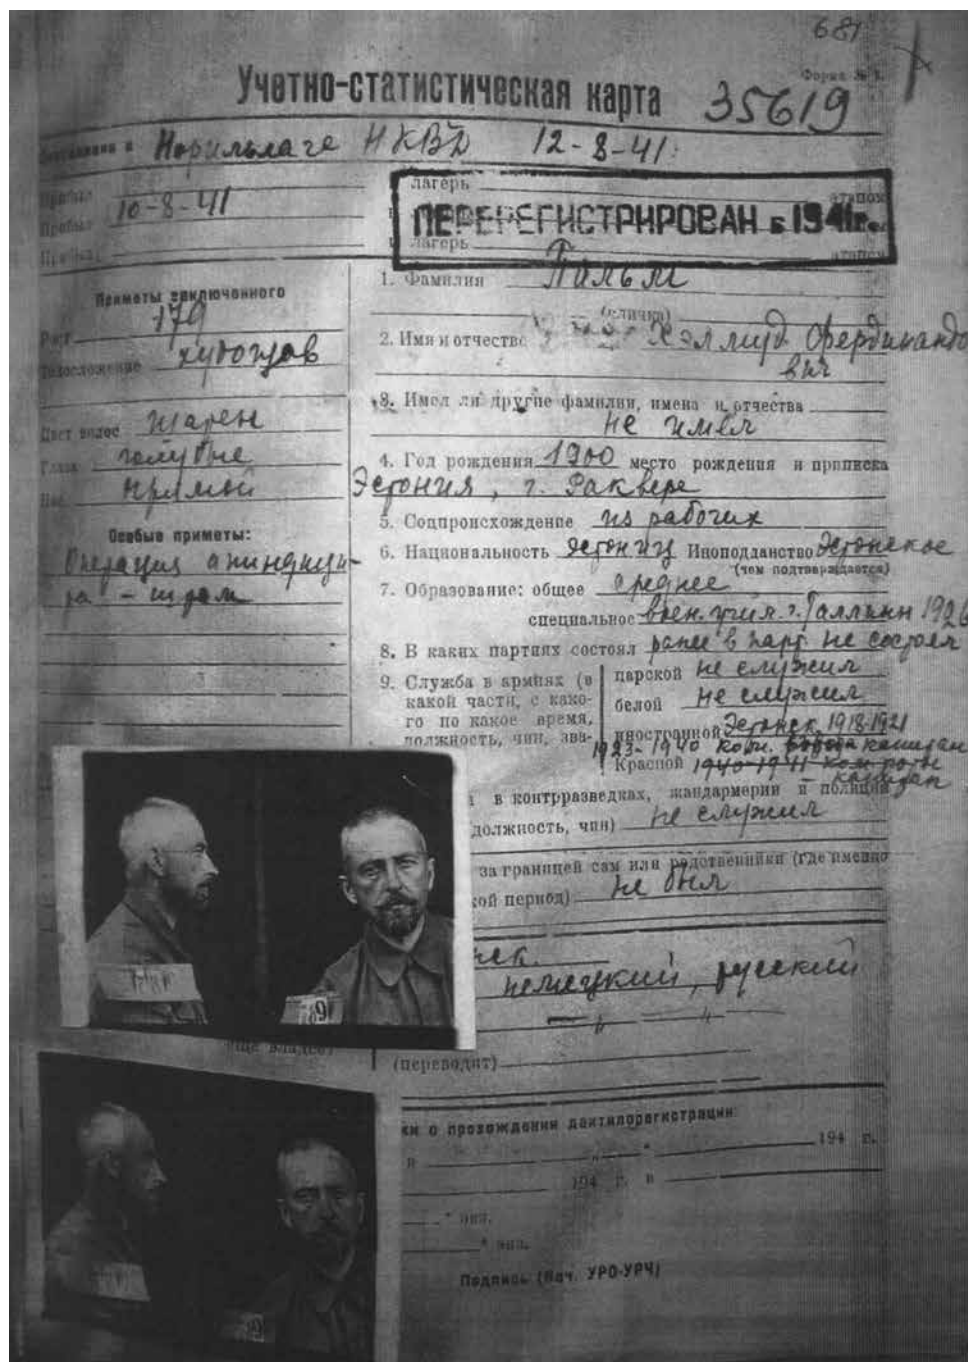 681
Форма № 1.
Учетно-статистическая карта 35619
Норильлаге НКВД 12-8-41.
Прибыл 10-8-41
Прибыл
Прибыл
лагерь этапом
ПЕРЕРЕГИСТРИРОВАН в 1941г.
лагерь этапом
Приметы заключенного
Рост 179
Телосложение худощав
Цвет волос шатен
Глаза голубые
Нос прямой
Особые приметы:
Операция апиндици-
та - шрам
1. Фамилия Пальм
(кличка)
2. Имя и отчество Хэллмуд Фердинандо
вич
3. Имел ли другие фамилии, имена и отчества
не имел
4. Год рождения 1900 место рождения и приписка
Эстония, г. Раквере
5. Соцпроисхождение из рабочих
6. Национальность эстонец Иноподданство Эстонское
(чем подтверждается)
7. Образование: общее среднее
специальное воен. учил. г. Таллин 1926
8. В каких партиях состоял ранее в парт. не состоял
9. Служба в армиях (в какой части, с како-
го по какое время,
должность, чин, зва-
царской не служил
белой не служил
иностранной Эстонск. 1918-1921
1923-1940 ком. капитан
Красной 1940-1941 ком роты
капитан
в контрразведках, жандармерии и полиции
должность, чин) не служил
за границей сам или родственники (где именно
кой период) не был
немецкий, русский
еще владеет)
(переводит)
ки о прохождении дактилорегистрации:
в " 194 г.
194 г. в
" экз.
" экз.
Подпись (Нач. УРО-УРЧ)